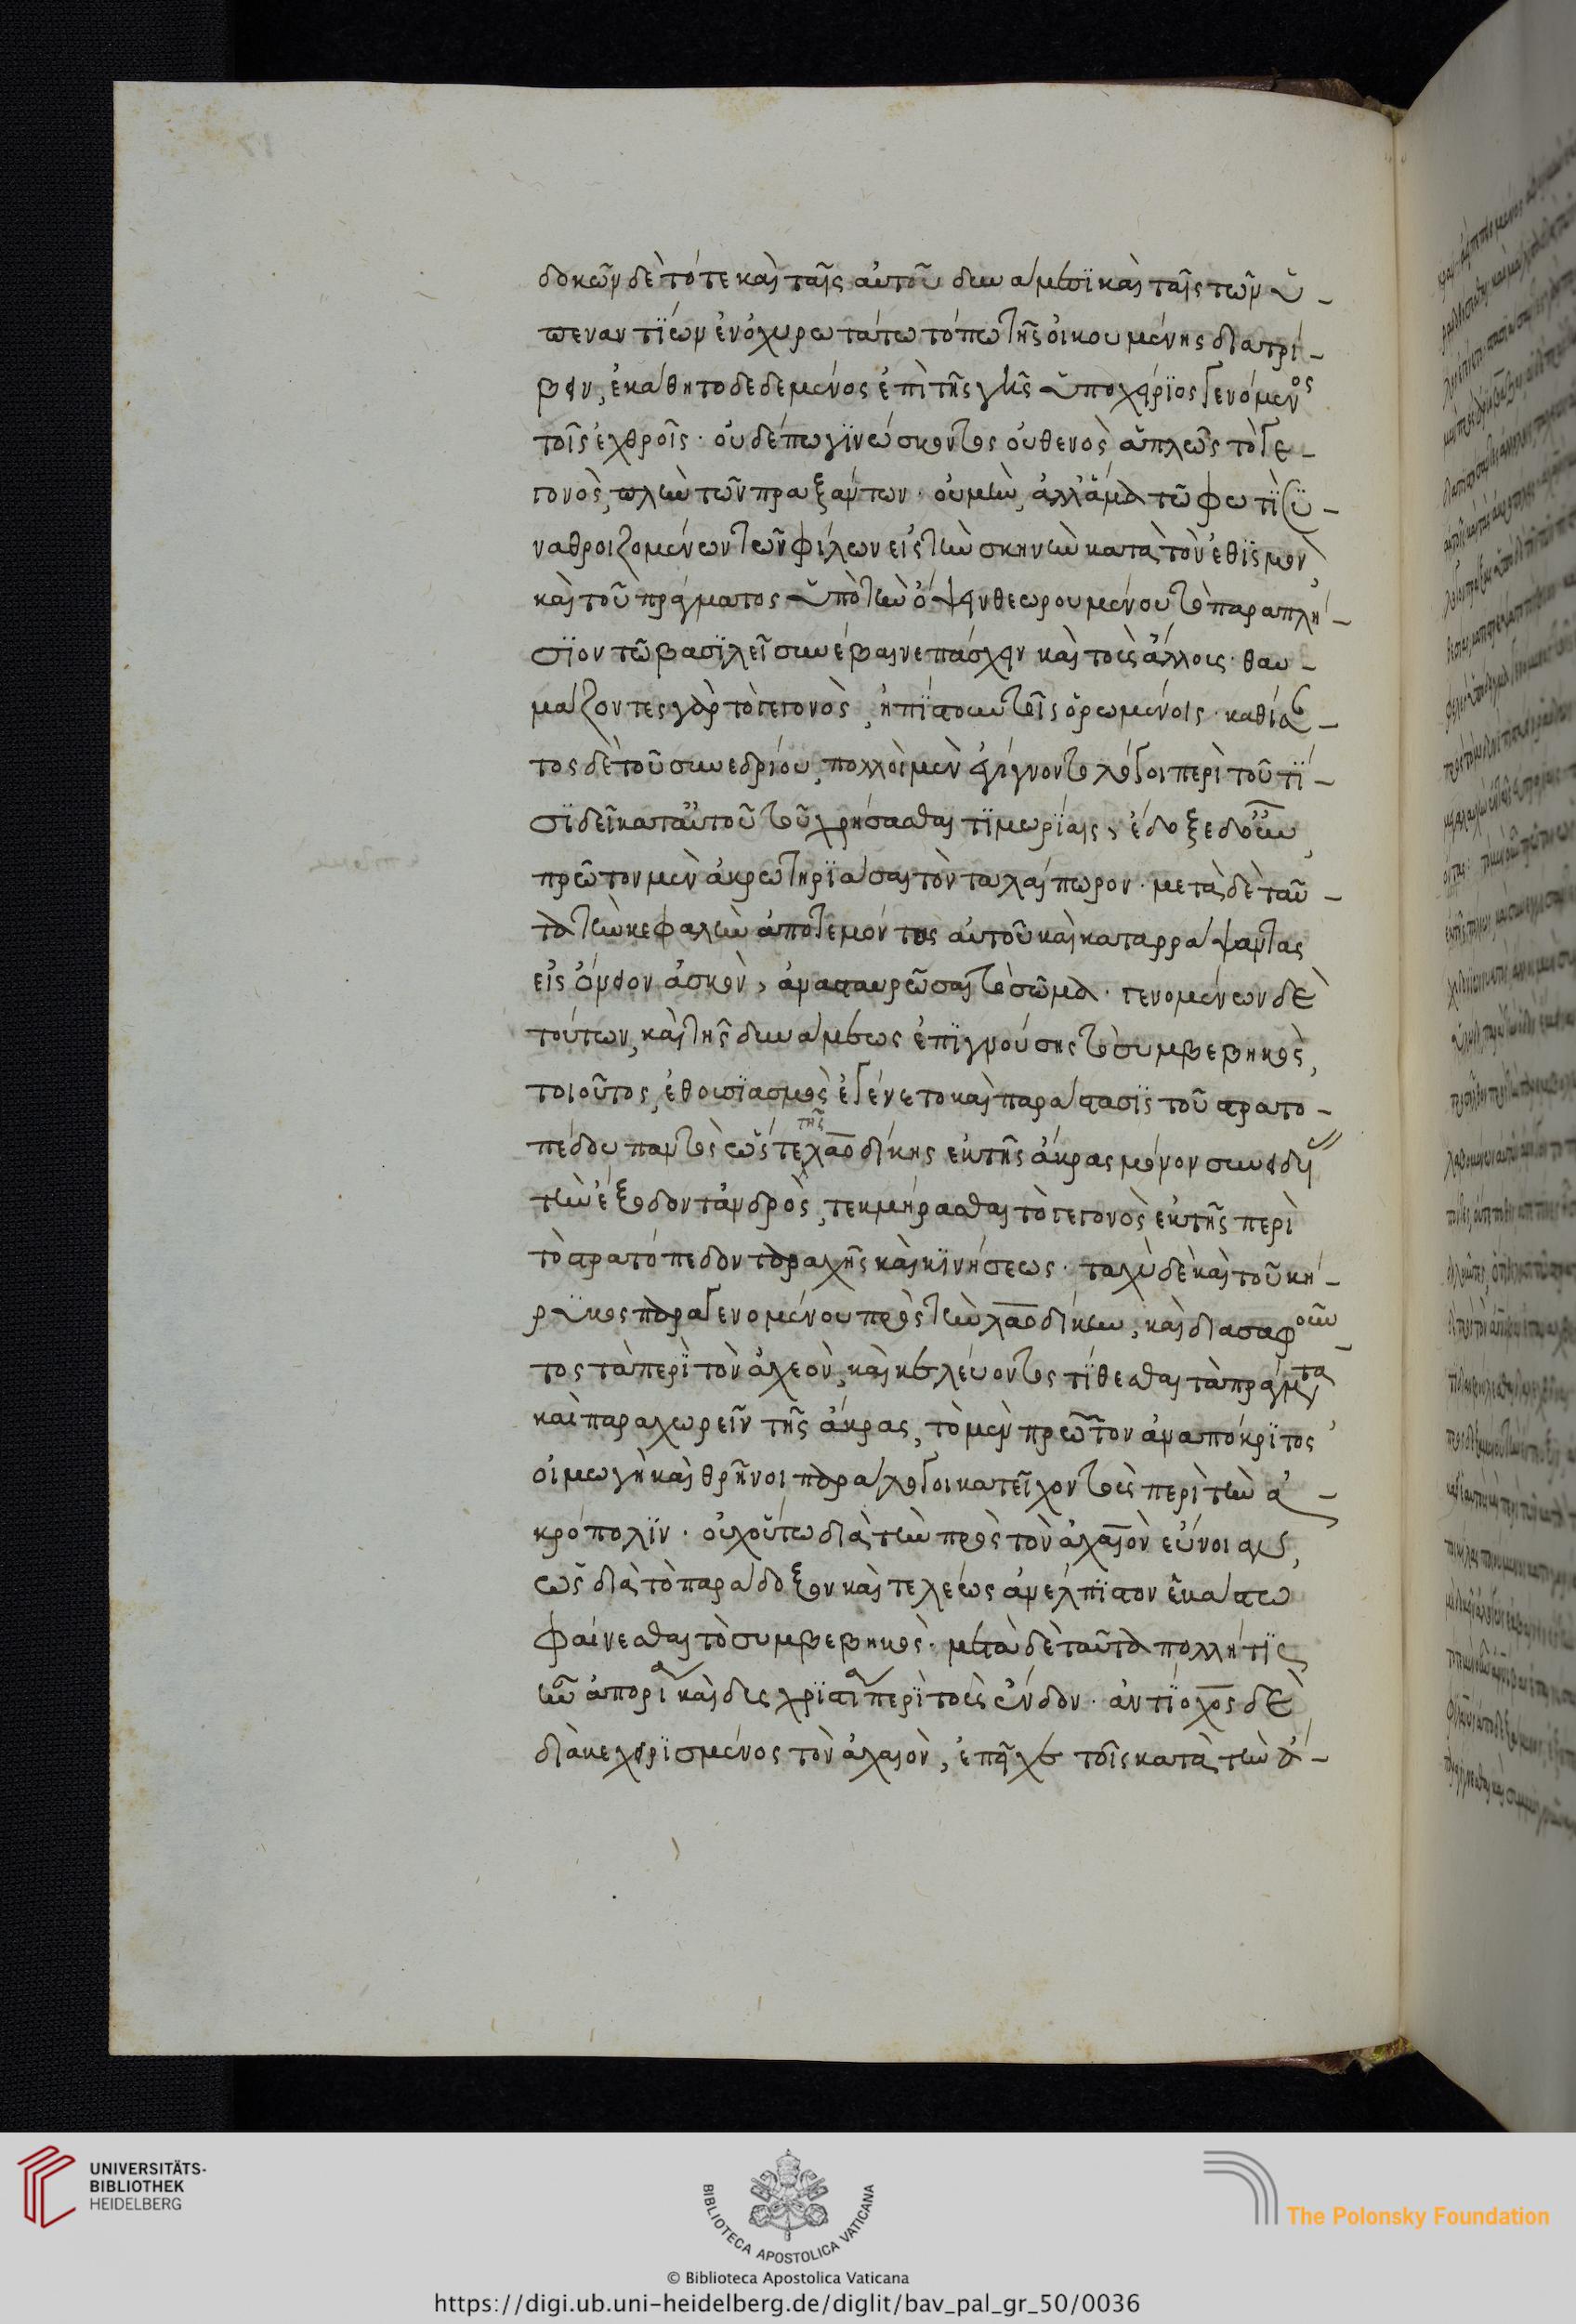 δοκῶν δὲ τότε καὶ ταῖς αὐτοῦ δυνάμεσϊ καὶ ταῖς τῶν ὑ-
πεναντϊων ἐν ὀχυρωτάτω τόπω τῆς οἰκουμένης διατρί-
βειν, ἐκάθητο δεδεμένος ἐπὶ τῆς γῆς ὑποχείρϊος γενόμενος
τοῖς ἐχθροῖς· οὐδέπω γϊνώσκοντος οὐθενὸς ἁπλῶς τὸ γε-
γονὸς, πλὴν τῶν πραξάντων· οὐ μὴν, ἀλλ' ἅμα τῶ φωτὶ συ-
ναθροιζομένων τῶν φίλων εἰς τὴν σκηνὴν κατὰ τὸν ἐθϊσμὸν,
καὶ τοῦ πράγματος ὑπὸ τὴν ὄψιν θεωρουμένου τὸ παραπλή-
σϊον τῶ βασϊλεῖ συνέβαινε πάσχειν καὶ τοὺς ἄλλους· θαυ-
μάζοντες γὰρ τὸ γεγονὸς, ἠπϊστουν τοῖς ὁρωμένοις· καθίσαν-
τος δὲ τοῦ συνεδρίου, πολλοὶ μὲν ἐγίγνοντο λόγοι περὶ τοῦ τί-
σϊ δεῖ κατ' αὐτοῦ τοῦ χρήσασθαι τϊμωρίαις, ἔδοξε δ' οὖν,
πρῶτον μὲν ἀκρωτηρϊάσαι τὸν ταλαίπωρον· μετὰ δὲ ταῦ-
τα τὴν κεφαλὴν ἀποτεμόντας αὐτοῦ καὶ καταρράψαντας
εἰς ὄνειον ἀσκὸν, ἀνασταυρῶσαι τὸ σῶμα· γενομένων δὲ
τούτων, καὶ τῆς δυνάμεως ἐπϊγνούσης τὸ συμβεβηκὸς,
τοιοῦτος, ἐθουσϊασμὸς ἐγένετο καὶ παράστασϊς τοῦ στρατο-
πέδου παντὸς ὥς τε τῆς λαοδίκης ἐκ τῆς ἄκρας μόνον συνειδυῖ
τὴν ἔξοδον τἀνδρὸς, τεκμήρασθαι τὸ γεγονὸς ἐκ τῆς περὶ
τὸ στρατόπεδον ταραχῆς καὶ κϊνήσεως· ταχὺ δὲ καὶ τοῦ κή-
ρϋκος παραγενομένου πρὸς τὴν λαοδίκην, καὶ διασαφοῦν-
τος τὰ περὶ τὸν ἀχεὸν, καὶ κελεύοντος τίθεσθαι τὰ πράγματα
καὶ παραχωρεῖν τῆς ἄκρας, τὸ μὲν πρῶτον ἀναπόκρϊτος
οἰμωγὴ καὶ θρῆνοι παράλογοι κατεῖχον τοὺς περὶ τὴν ἀ-
κρόπολϊν· οὐχ οὕτω διὰ τὴν πρὸς τὸν ἀχαιὸν εὔνοιαν,
ὡς διὰ τὸ παράδοξον καὶ τελέως ἀνέλπϊστον ἑκάστω
φαίνεσθαι τὸ συμβεβηκὸς· μετὰ δὲ ταῦτα πολλή τϊς
ἦν ἀπορία καὶ δυσχρϊστία περὶ τοὺς ἔνδον· ἀντίοχος δὲ
διακεχειρϊσμένος τὸν ἀχαιὸν, ἐπεῖχε τοῖς κατὰ τὴν ἄ-
UNIVERSITÄTS-
BIBLIOTHEK
HEIDELBERG
BIBLIOTECA APOSTOLICA VATICANA
The Polonsky Foundation
© Biblioteca Apostolica Vaticana
https://digi.ub.uni-heidelberg.de/diglit/bav_pal_gr_50/0036